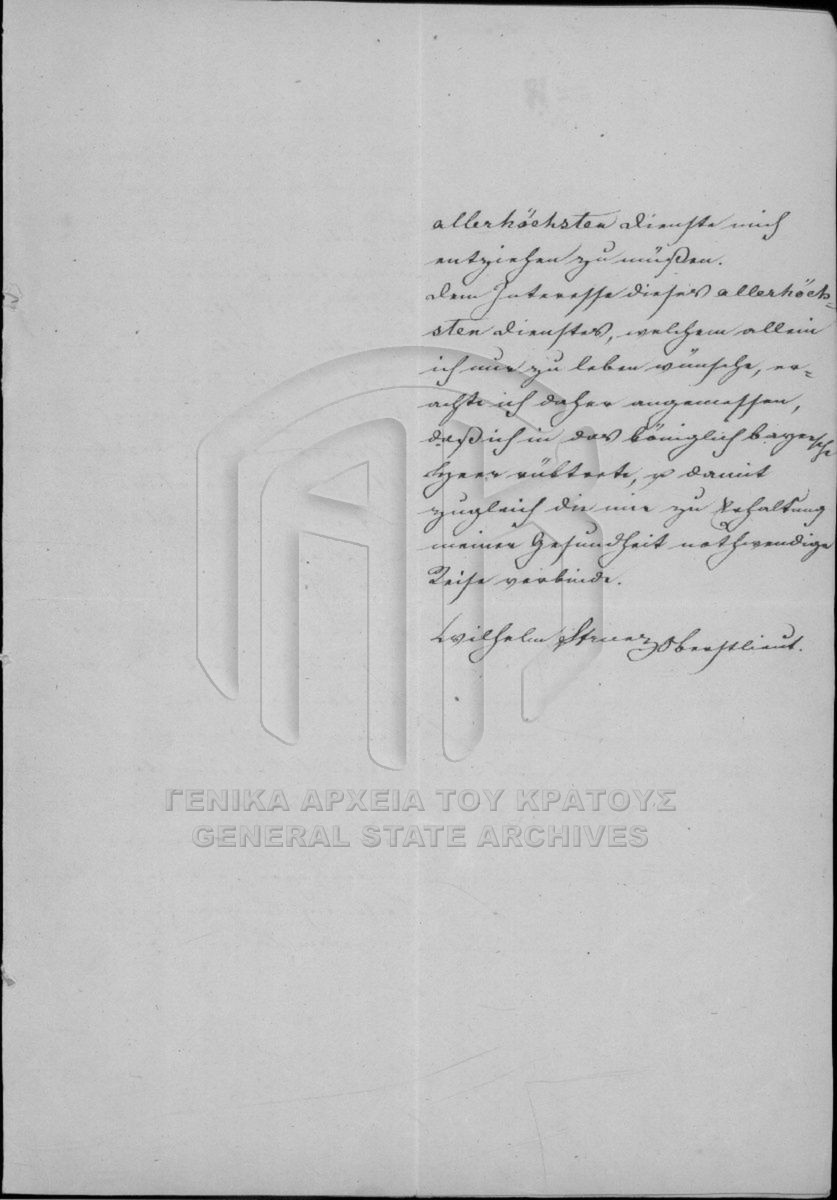 allerhöchsten Dienste mich
entziehen zu müßen.
Dem Interesse dieses allerhöch-
sten Dienstes, welchem allein
ich nur zu leben wünsche, er-
achte ich daher angemessen,
daß ich in das königlich bayersche
Heer rüktrete, u damit
zugleich die mir zu Erhaltung
meiner Gesundheit nothwendige
Reise verbinde.
Wilhelm Oberstlieut.
ΓΕΝΙΚΑ ΑΡΧΕΙΑ ΤΟΥ ΚΡΑΤΟΥΣ
GENERAL STATE ARCHIVES